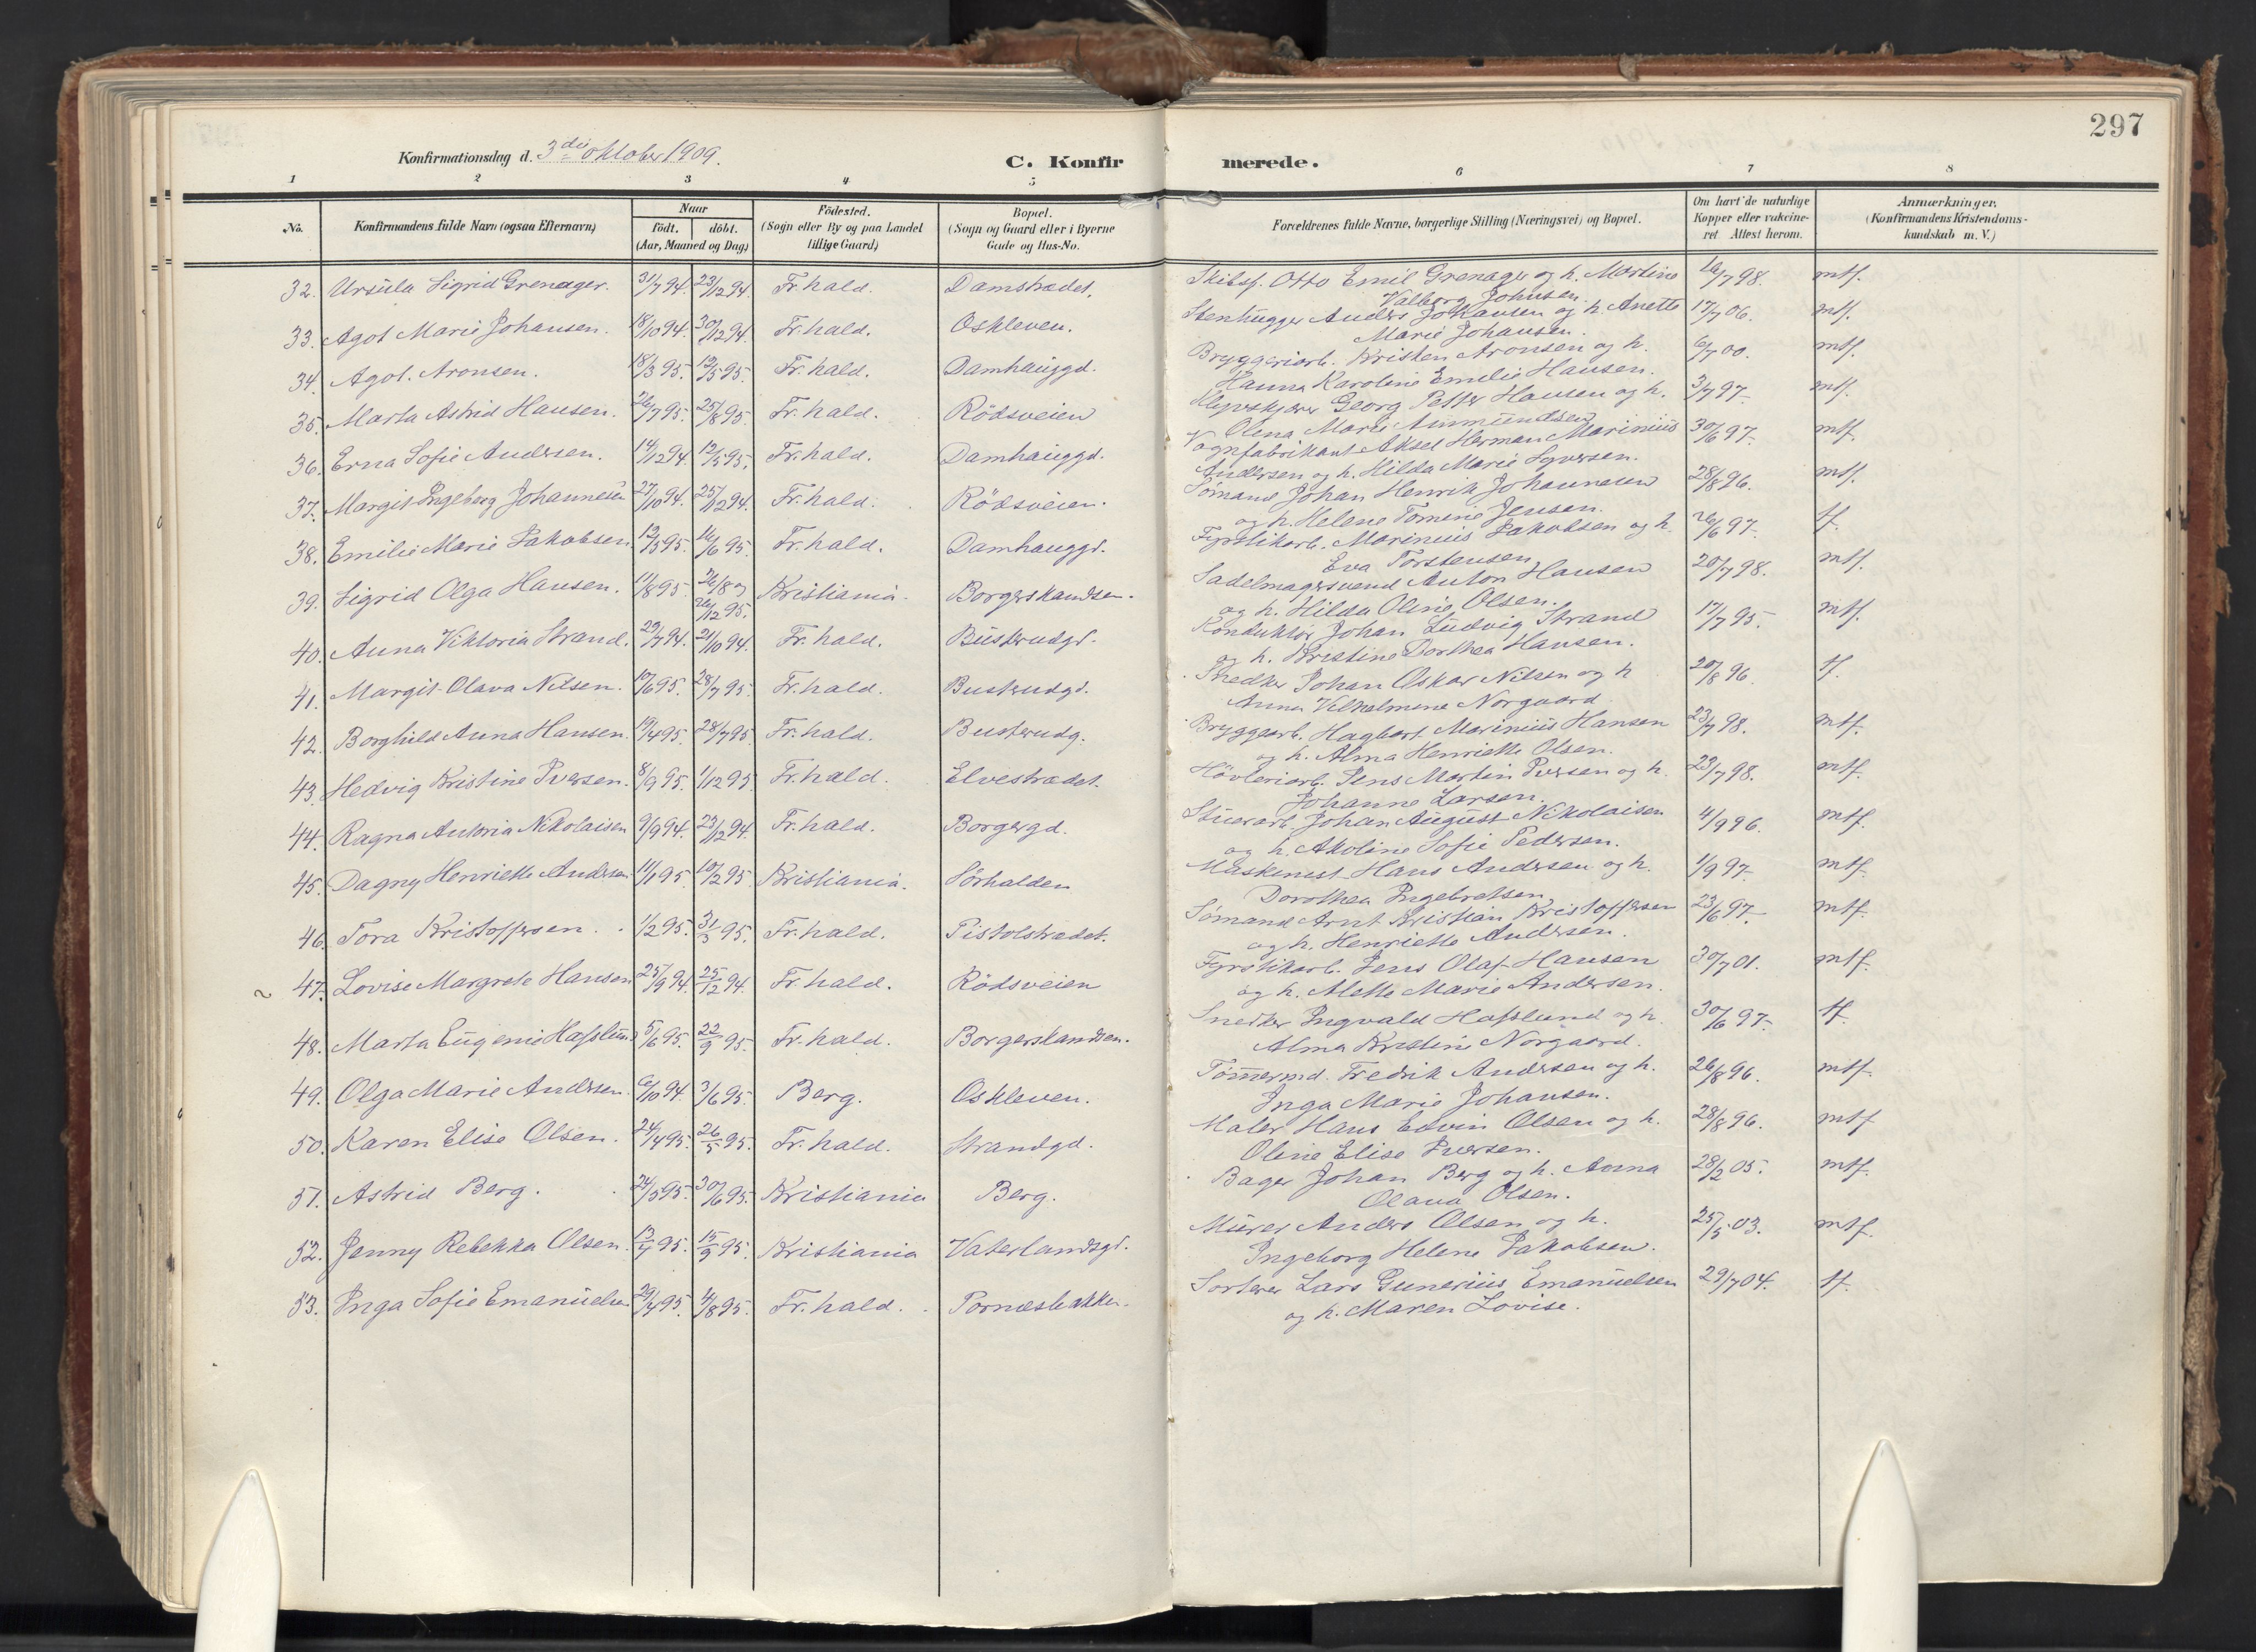 297
Konfirmationsdag d. 3die oktober 1909.
C. Konfirmerede.
1 2 3 4 5 6 7 8
No. | Konfirmandens fulde Navn (ogsaa Efternavn) | Naar født. døbt. (Aar, Maaned og Dag) | Fødested. (Sogn eller By og paa Landet tillige Gaard) | Bopæl. (Sogn og Gaard eller i Byerne Gade og Hus-No. | Forældrenes fulde Navne, borgerlige Stilling (Næringsvei) og Bopæl. | Om havt de naturlige Kopper eller vakcineret. Attest herom. | Anmærkninger. (Konfirmandens Kristendomskundskab m. V.)
32. Ursula Sigrid Grenager. 31/7 94. 23/12 94. Fr.hald. Damstrædet. Skibsf. Otto Emil Grenager og h. Martine 16/7 98. mtf.
Valborg Johnsen.
33. Agot Marie Johansen. 18/10 94. 30/12 94. Fr.hald. Oskleven. Stenhugger Anders Johansen og h. Anette 17/7 06. mtf.
Marie Johansen.
34. Agot. Aronsen. 18/3 95. 12/5 95. Fr.hald. Damhauggd. Bryggeriarb. Kristen Aronsen og h. 6/7 00. mtf.
Hanna Karoline Emilie Hansen.
35. Marta Astrid Hansen. 26/7 95. 25/8 95. Fr.hald. Rödsveien Georg Petter Hansen og h. 3/7 97. mtf.
Olena Marie Ammundsen
36. Erna Sofie Andersen. 14/12 94. 12/5 95. Fr.hald. Damhauggd. Vognfabrikant Aksel Herman Marinius 30/6 97. mtf.
Andersen og h. Hilda Marie Syversen.
37. Margit Ingeborg Johannesen 27/10 94. 25/12 94. Fr.hald. Rödsveien. Sömand Johan Henrik Johannesen 28/8 96. mtf.
og h. Helene Tomine Jensen.
38. Emilie Marie Jakobsen. 12/5 95. 16/6 95. Fr.hald. Damhauggd. Fyrstikarb. Marinius Jakobsen og h. 26/6 97. tf.
Eva Torstensen
39. Sigrid Olga Hansen. 11/8 95. 26/8 og 26/12 95. Kristiania. Borgerskandsen. Sadelmagersvend Anton Hansen 20/7 98. mtf.
og h. Hilda Oline Olsen.
40. Anna Viktoria Strand. 29/7 94. 21/10 94. Fr.hald. Busterudgd. Konduktör Johan Ludvig Strand 17/7 95. mtf.
og h. Kristine Dorthea Hansen.
41. Margit Olava Nilsen. 10/6 95. 28/7 95. Fr.hald. Busterudgd. Snedker Johan Oskar Nilsen og h 20/8 96. tf.
Anna Vilhelmine Norgaard.
42. Borghild Anna Hansen. 19/4 95. 28/7 95. Fr.hald. Busterudg. Bryggearb. Hagbart Marinius Hansen 23/7 98. mtf.
og h. Alma Henriette Olsen.
43. Hedvig Kristine Iversen. 8/9 95. 1/12 95. Fr.hald. Elvestrædet. Hövleriarb. Jens Martin Iversen og h. 23/7 98. mtf.
Johanne Larsen.
44. Ragna Antoria Nikolaisen 9/9 94. 23/12 94. Fr.hald. Borgergd. Stuerarb. Johan August Nikolaisen 4/9 96. mtf.
og h. Akoline Sofie Pedersen.
45. Dagny Henriette Andersen 11/1 95. 10/2 95. Kristiania. Sörhalden Maskinist Hans Andersen og h. 1/9 97. mtf.
Dorothea Ingebretsen
46. Tora Kristoffersen. 1/2 95. 31/3 95. Fr.hald. Pistolstrædet. Sömand Arnt Kristian Kristoffersen 23/6 97. mtf.
og h. Henriette Andersen.
47. Lovise Margrete Hansen 25/9 94. 25/12 94. Fr.hald. Rödsveien Fyrstikarb. Jens Olaf Hansen 30/7 01. mtf.
og h. Alette Marie Andersen.
48. Marta Eugenie Hafslund 5/6 95. 22/9 95. Fr.hald. Borgerskandsen. Snedker Ingvald Hafslund og h. 30/6 97. tf.
Alma Kristine Norgaard.
49. Olga Marie Andersen. 6/10 94. 3/6 95. Berg. Oskleven. Tömmermd. Fredrik Andersen og h. 26/8 96. mtf.
Inga Marie Johansen.
50. Karen Elise Olsen. 24/4 95. 26/5 95. Fr.hald. Strandgd. Maler Hans Edvin Olsen og h. 28/8 96. mtf
Oline Elise Iversen.
51. Astrid Berg. 24/5 95. 30/6 95. Kristiania Berg. Bager Johan Berg og h. Anna 28/2 05. mtf.
Olava Olsen.
52. Jenny Rebekka Olsen. 13/4 95. 15/9 95. Kristiania Vaterlandsgd. Murer Anders Olsen og h. 25/5 03. mtf.
Ingeborg Helene Jakobsen.
53. Inga Sofie Emanuelsen 29/4 95. 4/8 95. Fr.hald. Sorterer Lars Gunerius Emanuelsen 29/7 04. tf.
og h. Maren Lovise.